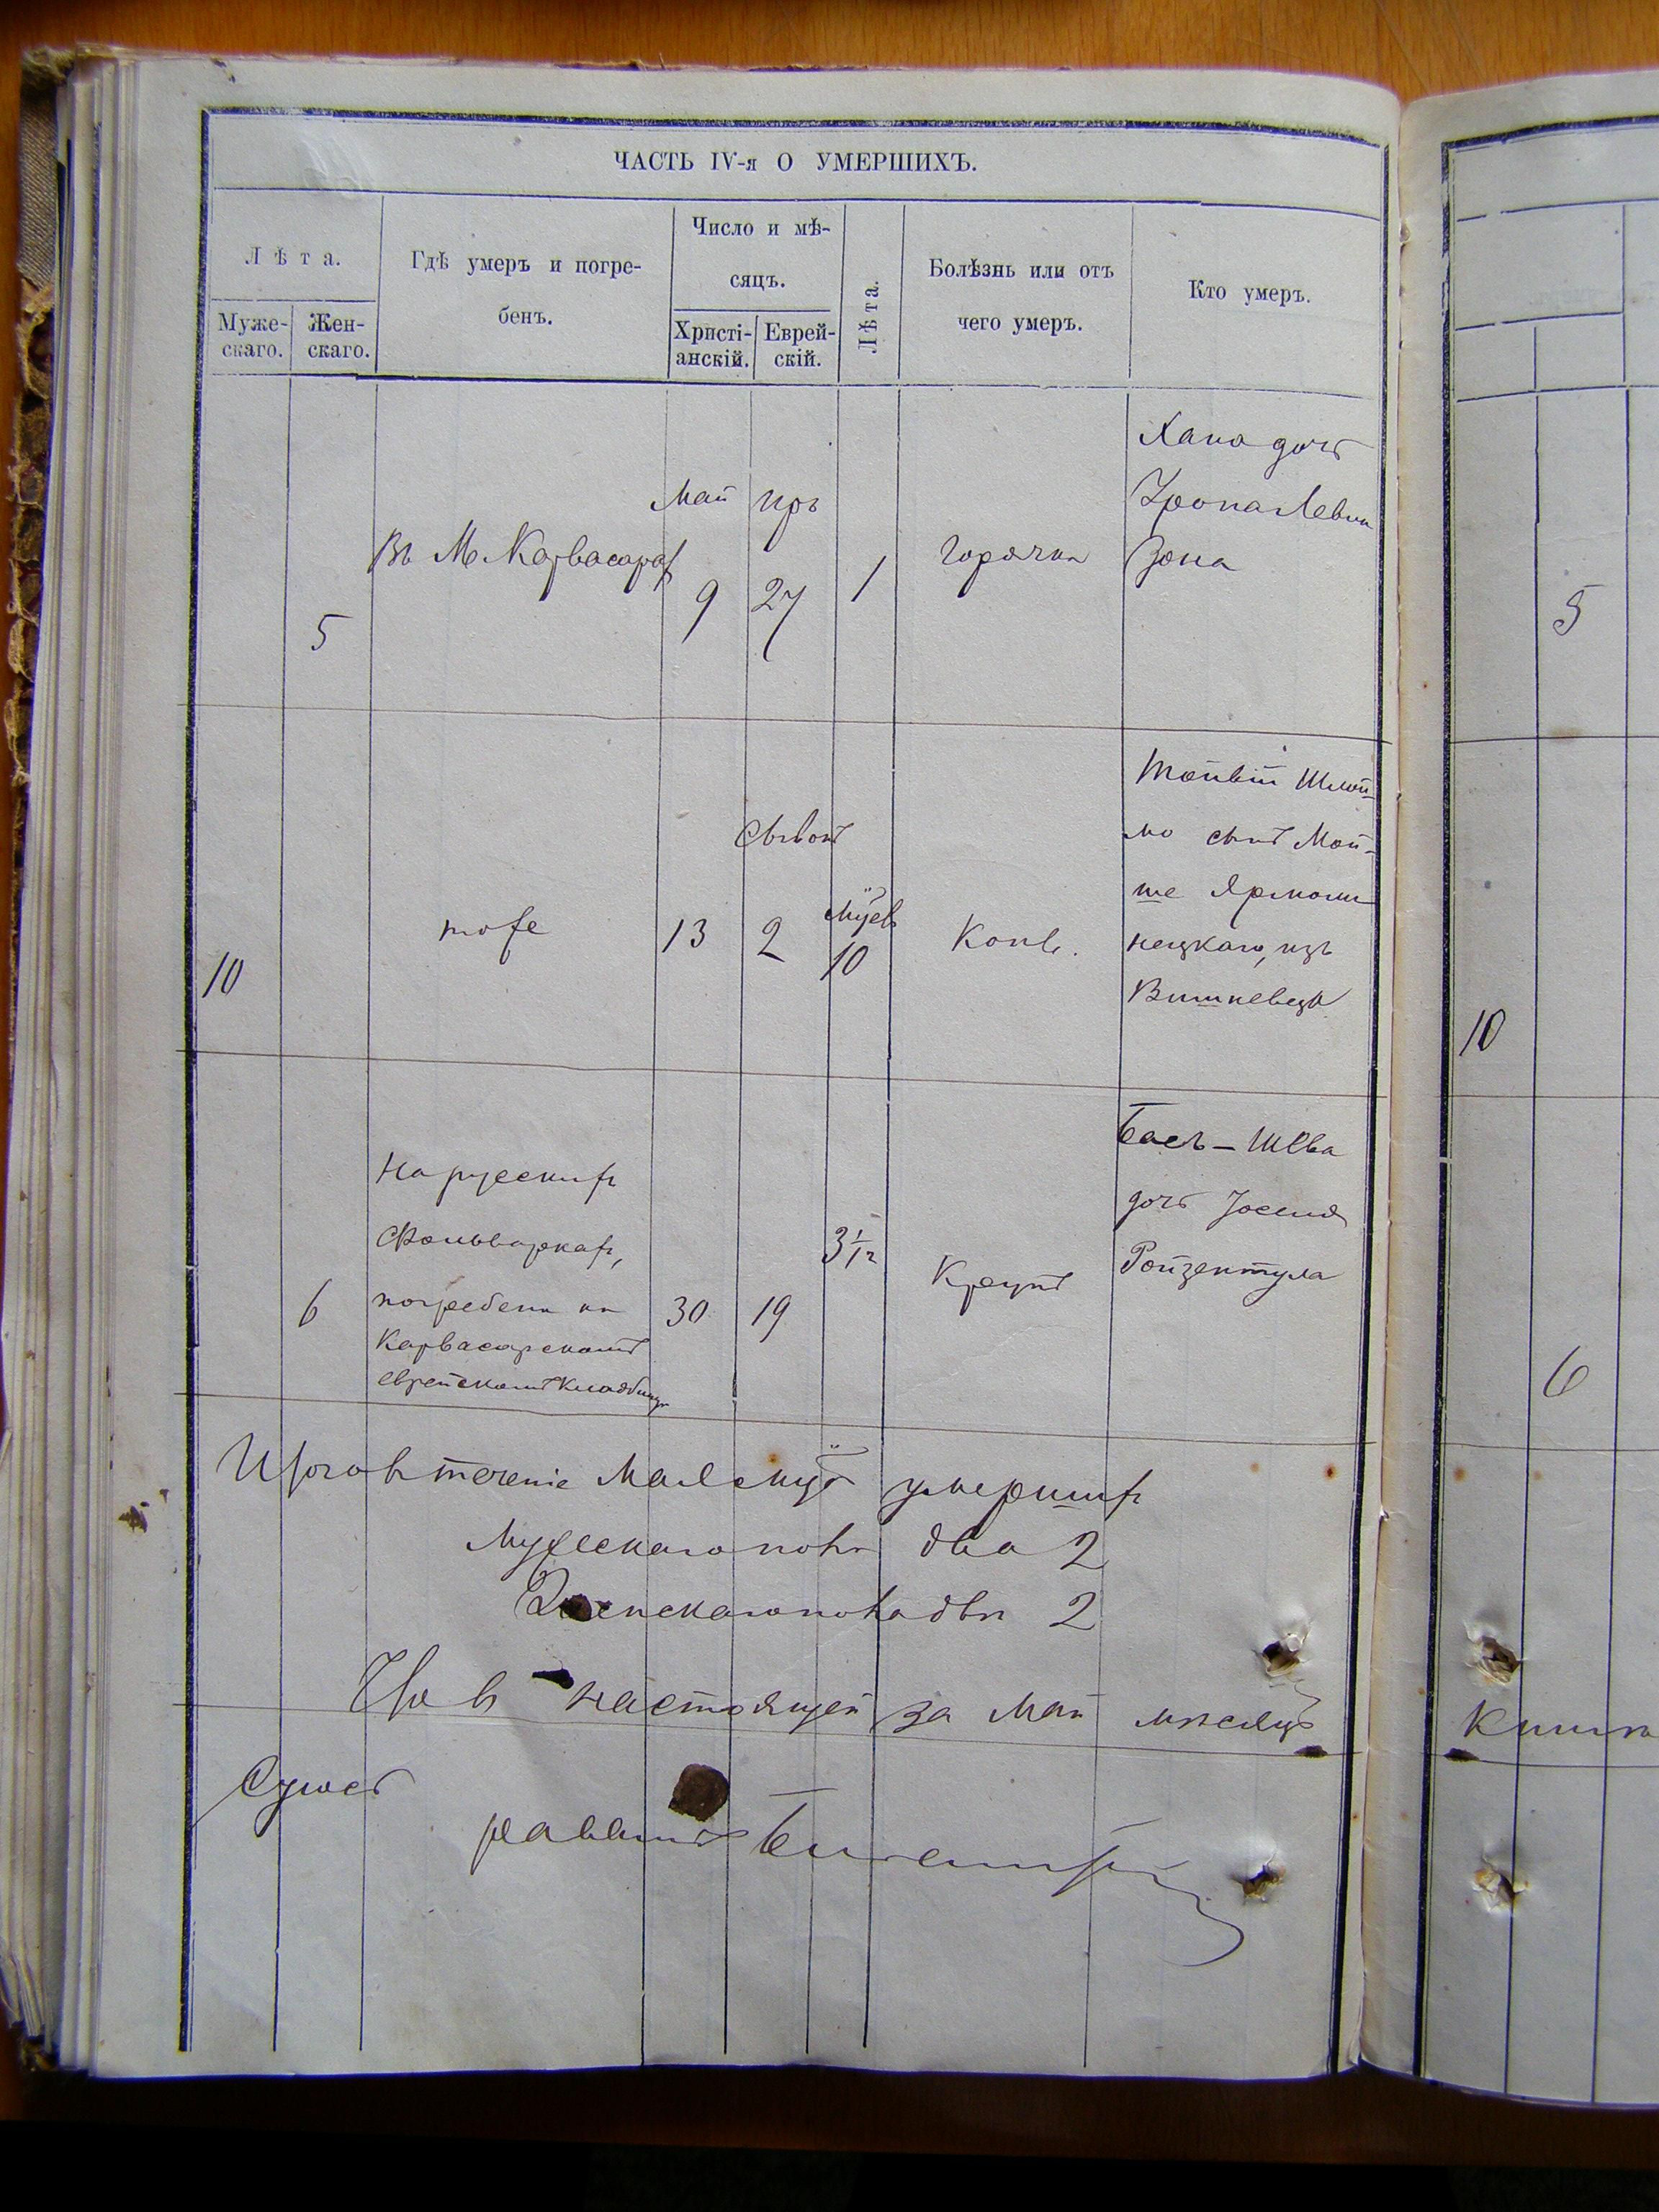 ЧАСТЬ IV-я О УМЕРШИХЪ.
Лѣта.
Муже-
скаго.
Жен-
скаго.
Гдѣ умеръ и погре-
бенъ.
Число и мѣ-
сяцъ.
Христі-
анскій.
Еврей-
скій.
Лѣта.
Болѣзнь или отъ
чего умеръ.
Кто умеръ.
5
Въ М Карвасарах
Май
9
Иръ
27
1
горячка
Хана дочь
Левин
зона
5
10
тоже
13
Сывонъ
2
10
Конв.
Шлой-
мо сынъ Мой-
ше Ярмоли
нецкаго, изъ
Вишневецъ
10
6
На русских
Фольваркахъ,
погребена на
Карвасарскомъ
еврейскомъ кладбищѣ
30
19
3 1/12
Крупъ
Бася-Шева
дочь Іося
Ройзентула
6
Итого въ теченіе Мая умершихъ
Мужескаго пола два 2
Женскаго пола двѣ 2
Что въ настоящей за Май мѣсяцъ
Книга
раввинъ